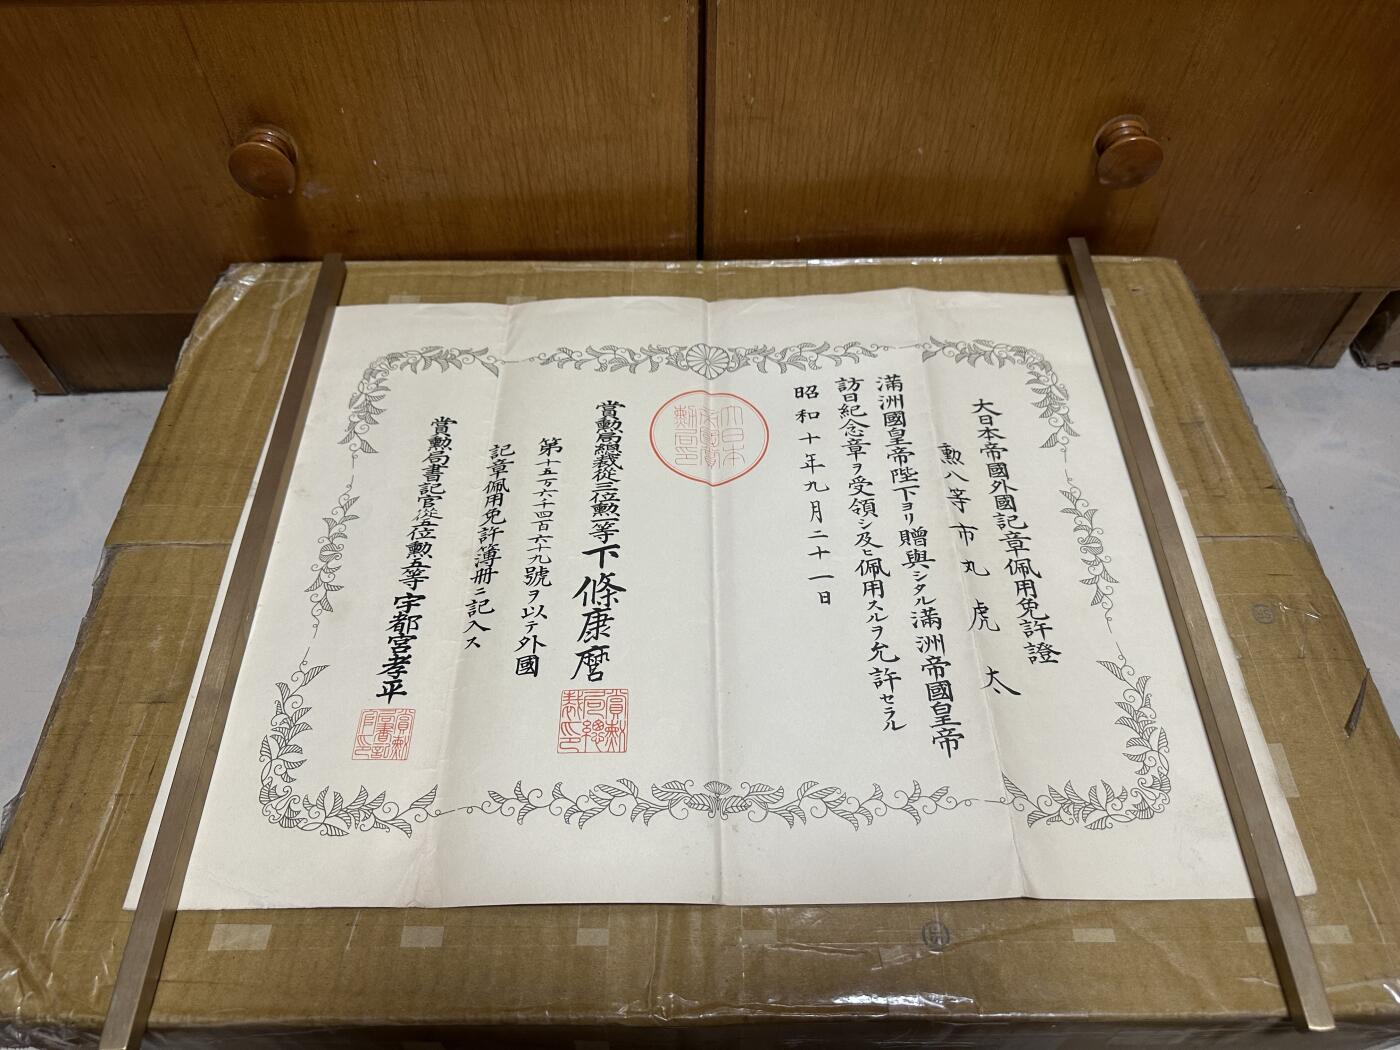 大日本帝國外國記章佩用免許證
勲八等市丸虎太
滿洲國皇帝陛下ヨリ贈與シタル滿洲帝國皇帝
訪日紀念章ヲ受領シ及ヒ佩用スルヲ允許セラル
昭和十年九月二十一日
大日本
帝國賞
勲局印
賞勲局總裁從三位勲一等下條康麿
賞勲
局總
裁印
第十五万六千四百六十九號ヲ以テ外國
記章佩用免許簿册ニ記入ス
賞勲局書記官從五位勲五等宇都宮孝平
賞勲
局書記
官印